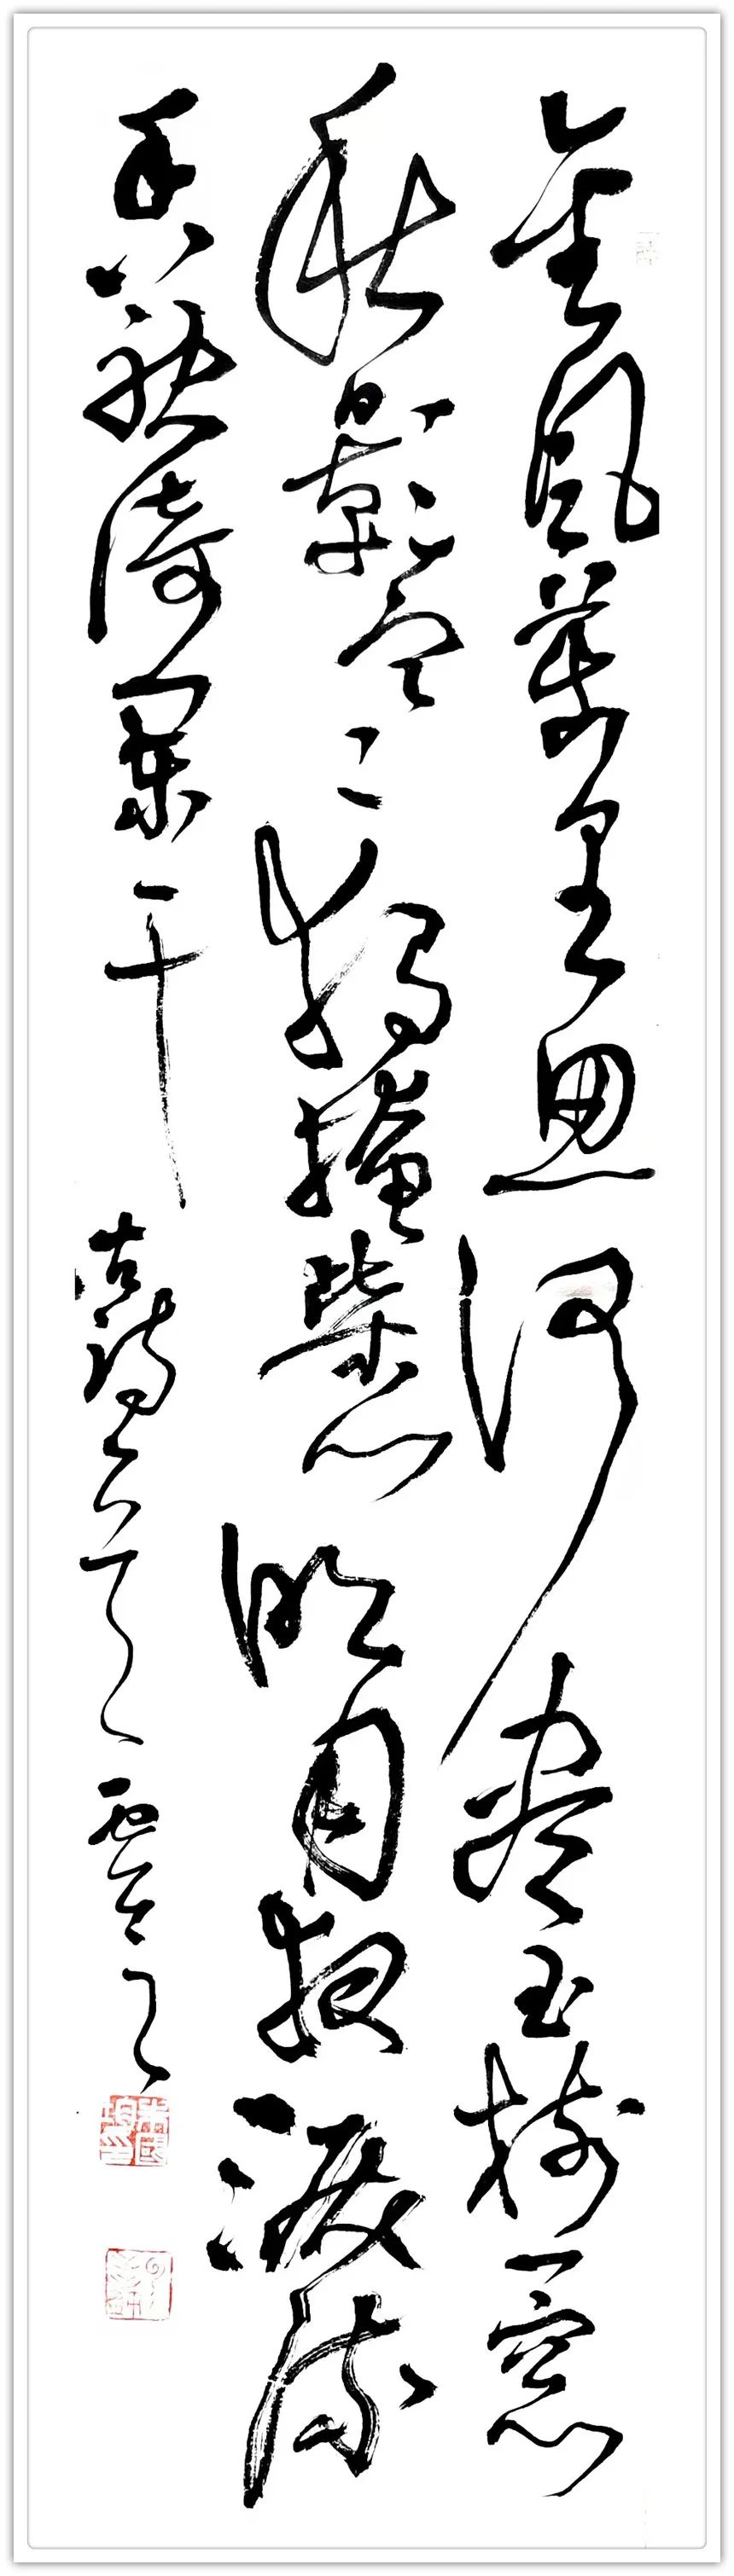 金風萬里思何盡玉樹一窗
秋影寒獨掩柴門明月夜淚流
香袂倚闌干 古詩一首